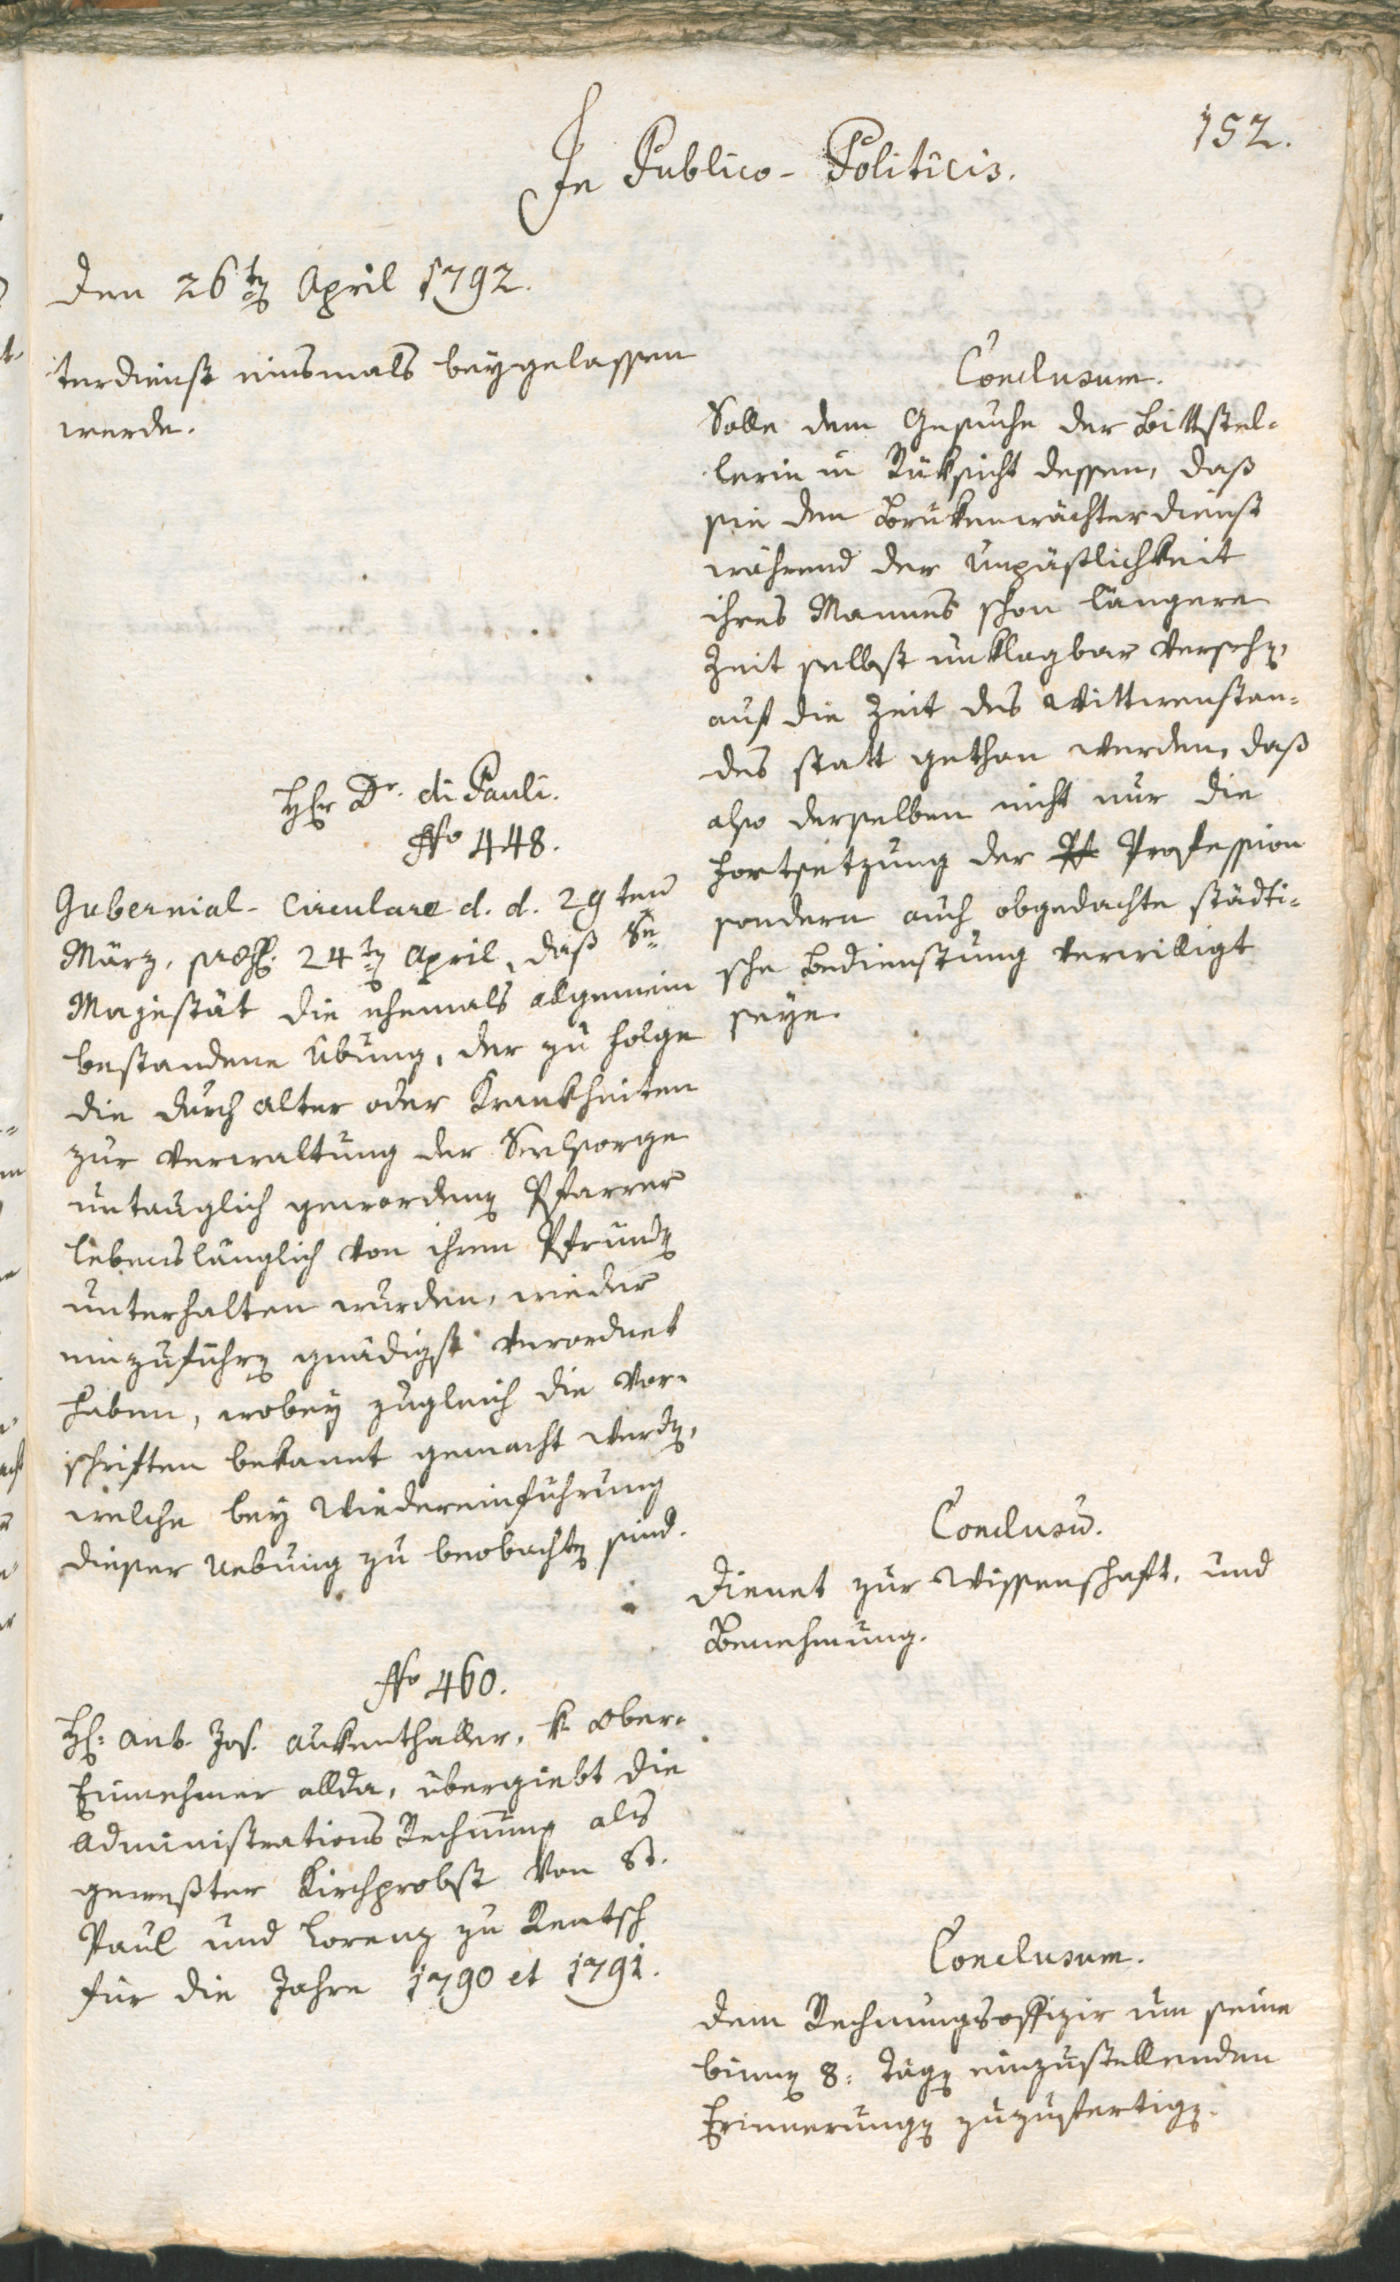 152.
In Publico-Politicis.
Den 26ten April 1792.
terdienst einsmals beygelassen
werde.
Conclusum.
Solle dem Gesuche der Bittstel-
lerin in Rüksicht dessen, daß
sie den Brukenwächterdienst
während der Unpäßlichkeit
ihres Mannes schon längere
Zeit selbst unklagbar versehen,
auf die Zeit des Wittwenstan-
des statt gethan werden, daß
also derselben nicht nur die
Fortsetzung der Profession
sondern auch obgedachte städti-
sche Bedienstung verwilligt
seye.
Hr Dr. di Pauli.
No 448.
Gubernial-Circulare d. d. 29ten
März, 24ten April, daß Se
Majestät die ehemals allgemein
bestandene Übung, der zu Folge
die durch Alter oder Krankheiten
zur Verwaltung der Seelsorge
untauglich gewordenen Pfarrer
lebenslänglich von ihren Pfründen
unterhalten wurden, wieder
einzuführen gnädigst verordnet
haben, wobey zugleich die Vor-
schriften bekannt gemacht werden,
welche bey Wiedereinführung
dieser Uebung zu beobachten sind.
Conclusum.
Dienet zur Wissenschaft, und
Benehmung.
No 460.
Hr: Ant. Jos. Aukenthaller, k. Ober-
Einnehmer allda, übergiebt die
Administrations Rechnung als
gewester Kirchprobst von St.
Paul und Lorenz zu Rentsch
für die Jahre 1790 et 1791.
Conclusum.
Dem Rechnungsoffizir um seine
binnen 8: Tägen einzustellenden
Erinnerungen zuzufertigen.